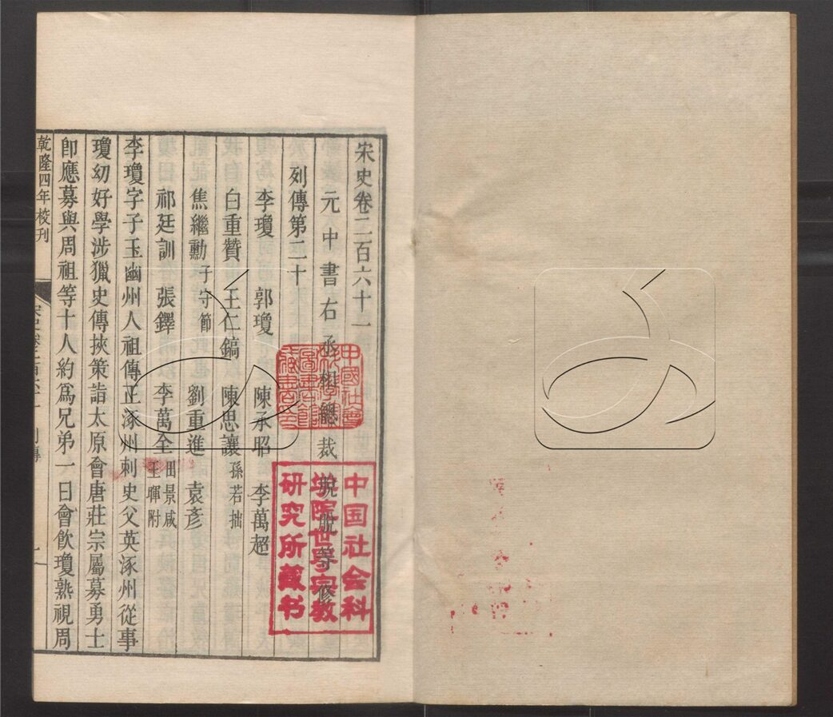 宋史卷二百六十一
元中書右丞相總裁脫脫等修
列傳第二十
李瓊 郭瓊 陳承昭 李萬超
白重贊 王仁鎬 陳思讓 孫若拙
焦繼勳 子守節 劉重進 袁彥
祁廷訓 張鐸 李萬全 田景咸 王暉附
李瓊字子玉幽州人祖傳正涿州刺史父英涿州從事
瓊幼好學涉獵史傳挾策詣太原會唐莊宗屬募勇士
卽應募與周祖等十人約爲兄弟一日會飲瓊熟視周
乾隆四年校刊
中國社會
中国社会科
学院世界宗教
研究所藏书